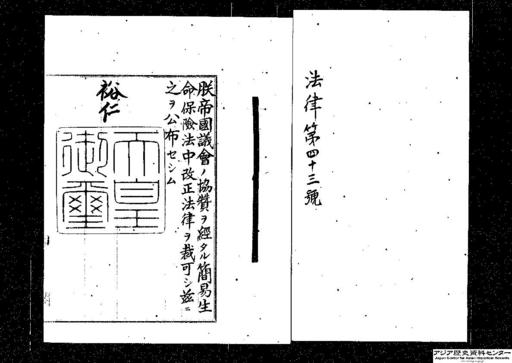 法律第四十三號
朕帝國議會ノ協贊ヲ經タル簡易生
命保險法中改正法律ヲ裁可シ茲ニ
之ヲ公布セシム
裕仁
天皇
御璽
アジア歴史資料センター
Japan Center for Asian Historical Records